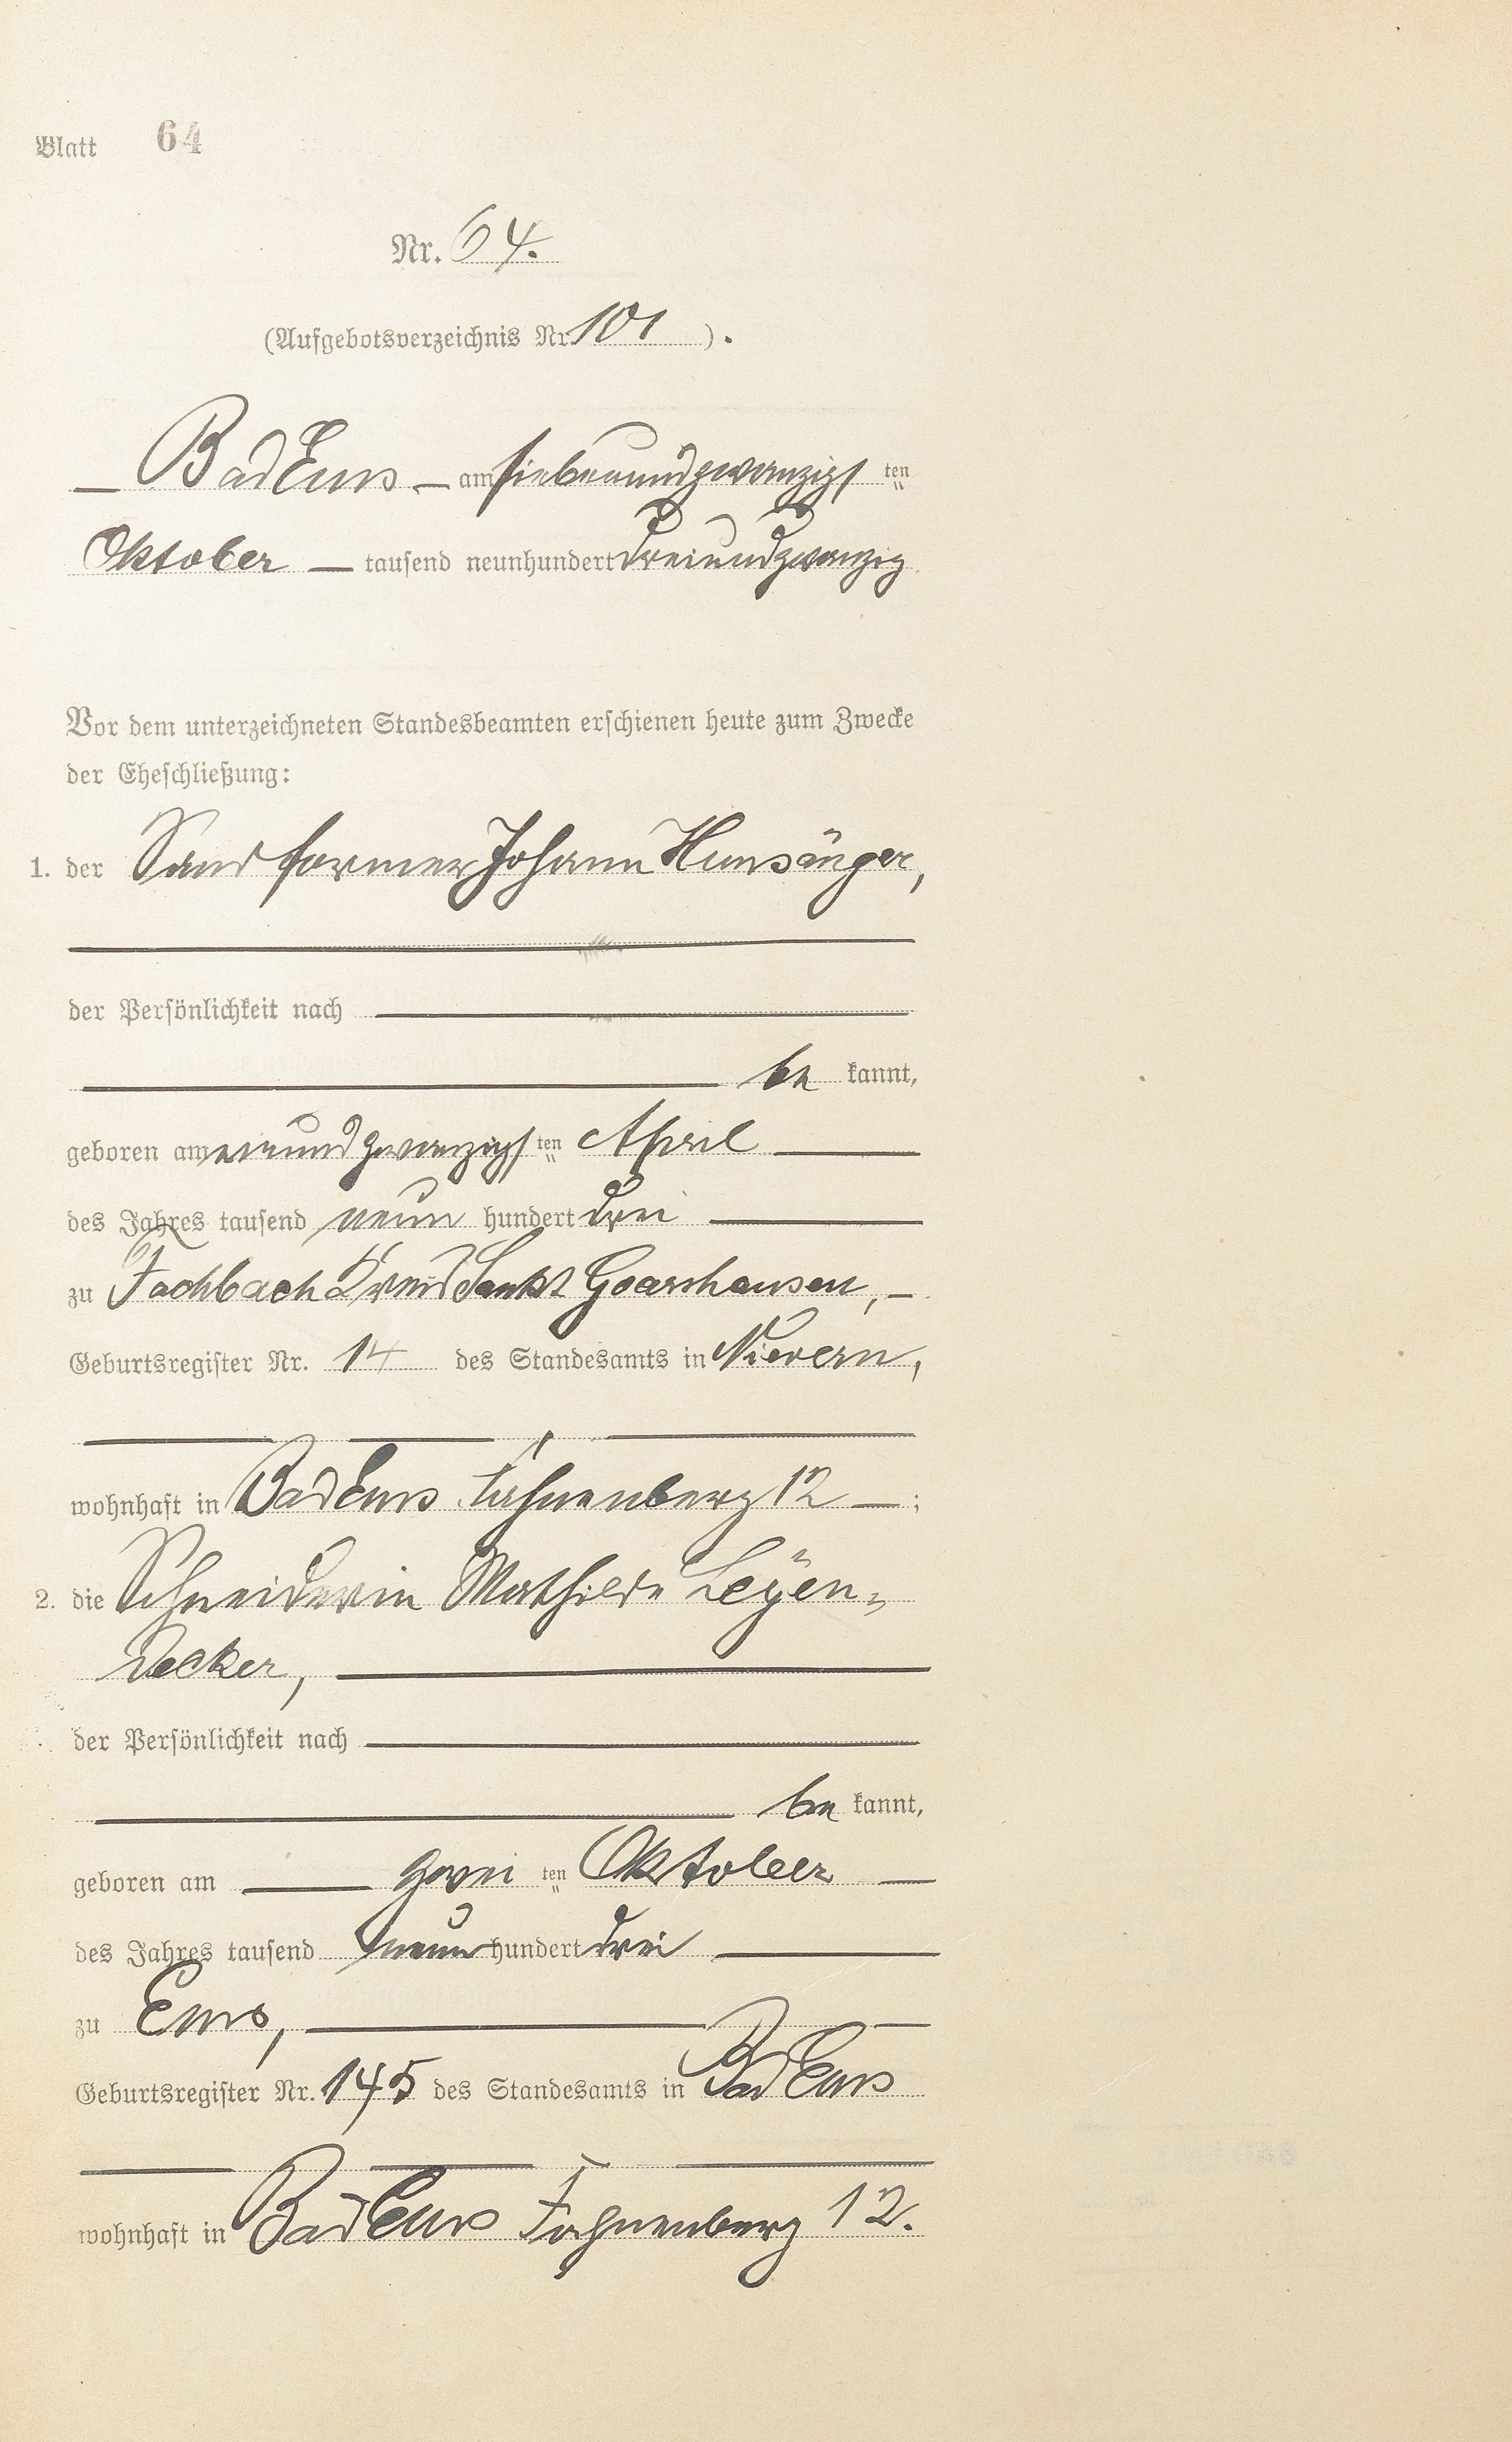 Blatt 64
Nr. 64.
(Aufgebotsverzeichnis Nr. 101 ).
Bad Ems — am siebenundzwanzigsten
Oktober — tausend neunhundert dreiundzwanzig
Vor dem unterzeichneten Standesbeamten erschienen heute zum Zwecke
der Eheschließung:
1. der Sandformer Johann Hunsänger,
der Persönlichkeit nach
be kannt,
geboren am einundzwanzigsten April
des Jahres tausend neun hundert drei
zu Fachbach Kreis Sankt Goarshausen, —
Geburtsregister Nr. 14 des Standesamts in Nievern,
wohnhaft in Bad Ems Fahnenberg 12 — ;
2. die Schneiderin Mathilde Leÿen-
decker,
der Persönlichkeit nach
be kannt,
geboren am — zwei ten Oktober —
des Jahres tausend neun hundert drei
zu Ems,
Geburtsregister Nr. 145 des Standesamts in Bad Ems
wohnhaft in Bad Ems Fahnenberg 12.